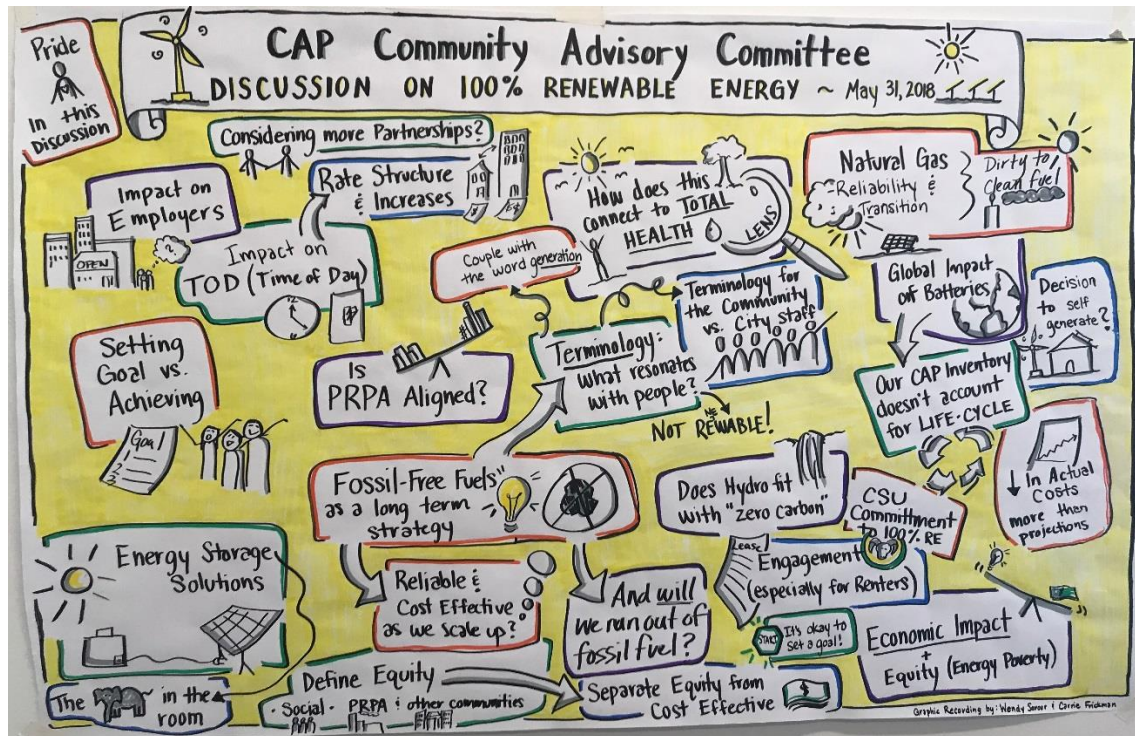 CAP Community Advisory Committee
DISCUSSION ON 100% RENEWABLE ENERGY ~ May 31, 2018
Pride
In this
Discussion
Considering more Partnerships?
Rate Structure
& Increases
Impact on
Employers
OPEN
?
Impact on
TOD (Time of Day)
How does this
connect to TOTAL
HEALTH
LENS
Natural Gas
Reliability &
Transition
Dirty to
Clean fuel
Couple with
the word generation
Terminology for
the Community
vs. City staff
Global Impact
of Batteries
Decision
to self
generate?
Setting
Goal vs.
Achieving
Goal
Is
PRPA Aligned?
Terminology:
what resonates
with people?
NOT RENEWABLE!
Our CAP Inventory
doesn't account
for LIFE-CYCLE
Fossil-Free Fuels"
as a long term
strategy
Does Hydro fit
with "zero carbon"
CSU
Commitment
to 100% RE
↓ In Actual
Costs
more than
projections
Energy Storage
Solutions
Reliable &
Cost Effective
as we scale up?
And will
we run out of
fossil fuel?
Lease
Engagement
(especially for Renters)
START
It's okay to
set a goal!
Economic Impact
+
Equity (Energy Poverty)
The in the
room
Define Equity
· Social · PRPA & other communities
Separate Equity from
Cost Effective
$
Graphic Recording by: Wendy Serour & Carrie Frickman